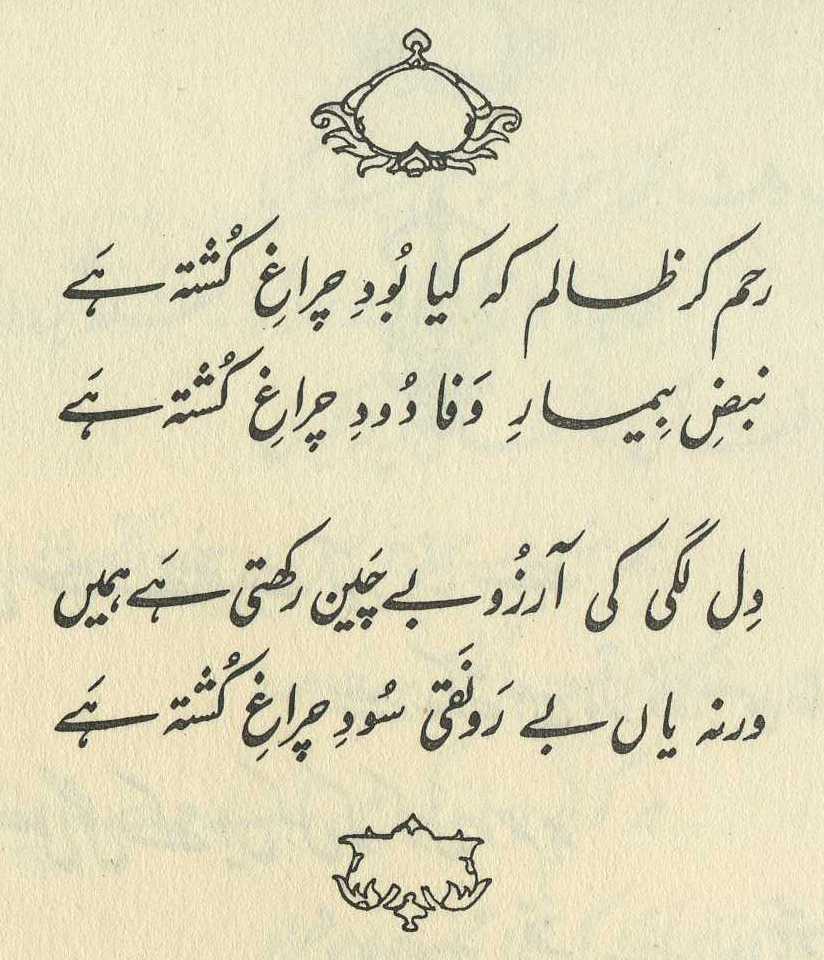 رحم کر ظالم کہ کیا بُودِ چراغِ کُشتہ ہَے
نبضِ بِیمارِ وَفا دُودِ چراغِ کُشتہ ہَے
دِل لگی کی آرزُو بے چَین رکھتی ہَے ہمیں
ورنہ یاں بے رَونَقی سُودِ چراغِ کُشتہ ہَے